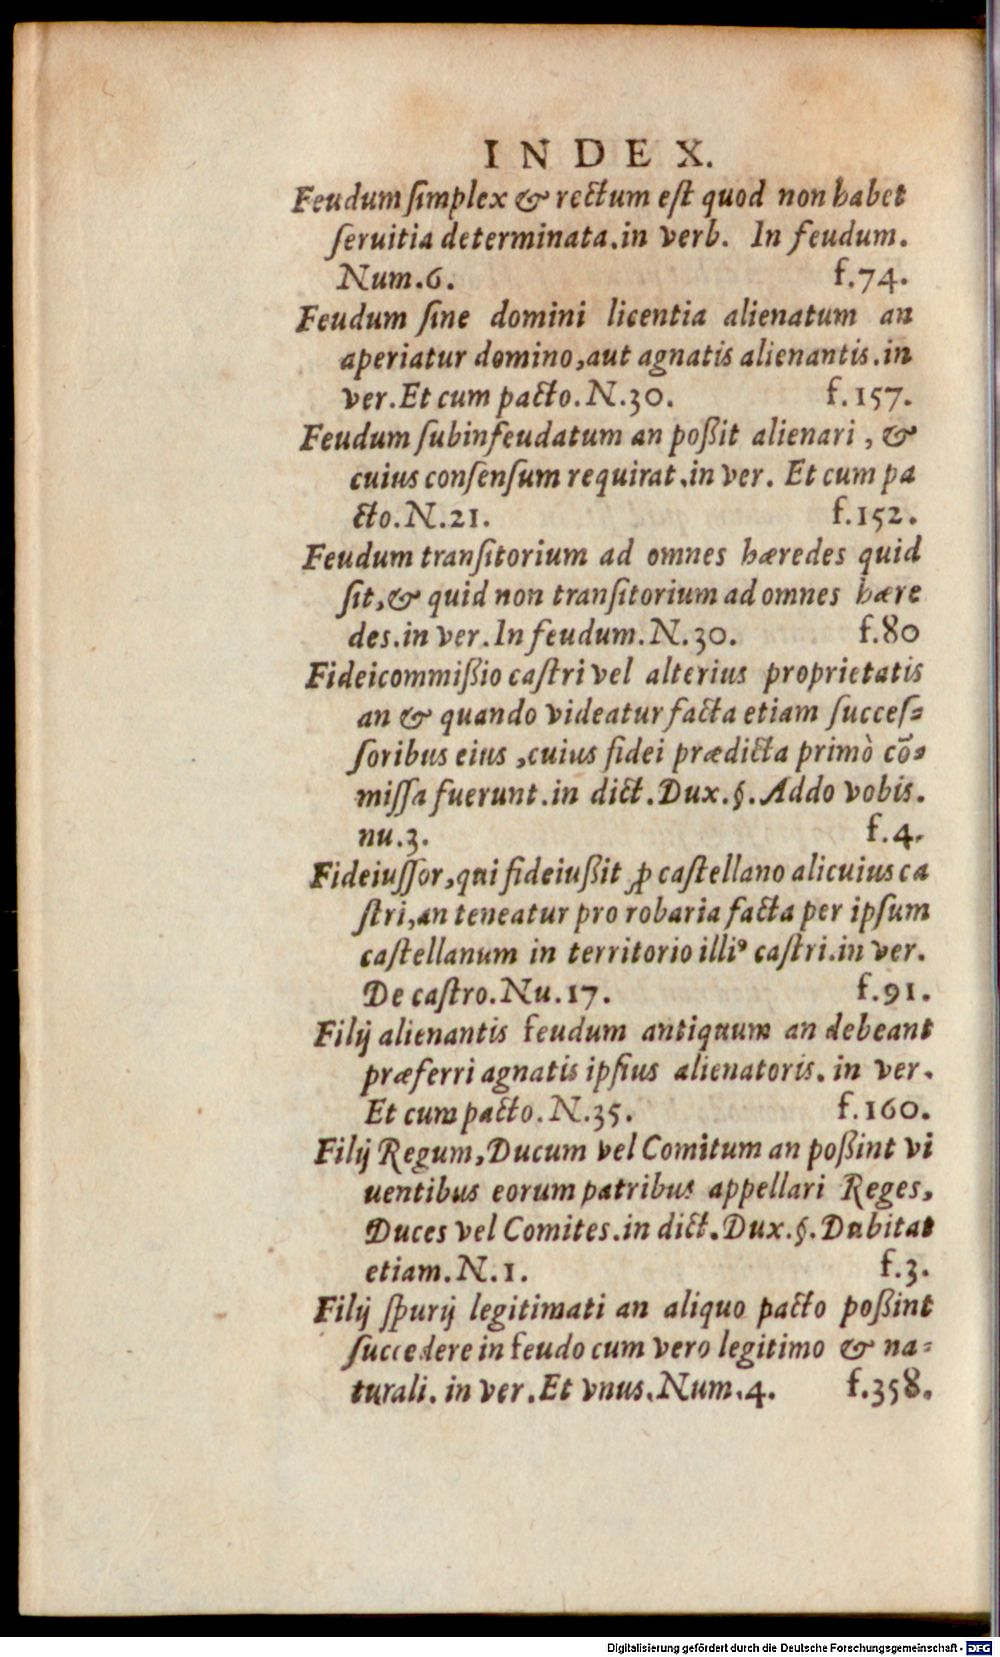 INDEX.
Feudum ſimplex & rectum eſt quod non habet
ſeruitia determinata.in verb. In feudum.
Num.6. f.74.
Feudum ſine domini licentia alienatum an
aperiatur domino,aut agnatis alienantis.in
ver.Et cum pacto.N.30. f.157.
Feudum ſubinfeudatum an poßit alienari , &
cuius conſenſum requirat.in ver. Et cum pa
cto.N.21. f.152.
Feudum tranſitorium ad omnes hæredes quid
ſit,& quid non tranſitorium ad omnes hære
des.in ver.In feudum.N.30. f.80
Fideicommißio caſtri vel alterius proprietatis
an & quando videatur facta etiam ſucceſ-
ſoribus eius ,cuius fidei prædicta primò cõ-
miſſa fuerunt.in dict.Dux.§.Addo vobis.
nu.3. f.4.
Fideiuſſor,qui fideiußit ꝓ caſtellano alicuius ca
ſtri,an teneatur pro robaria facta per ipſum
caſtellanum in territorio illiꝰ caſtri.in ver.
De caſtro.Nu.17. f.91.
Filij alienantis feudum antiquum an debeant
præferri agnatis ipſius alienatoris. in ver.
Et cum pacto.N.35. f.160.
Filij Regum,Ducum vel Comitum an poßint vi
uentibus eorum patribus appellari Reges,
Duces vel Comites.in dict.Dux.§.Dubitat
etiam.N.1. f.3.
Filij ſpurij legitimati an aliquo pacto poßint
ſuccedere in feudo cum vero legitimo & na-
turali. in ver.Et vnus.Num.4. f.358.
Digitalisierung gefördert durch die Deutsche Forschungsgemeinschaft - DFG